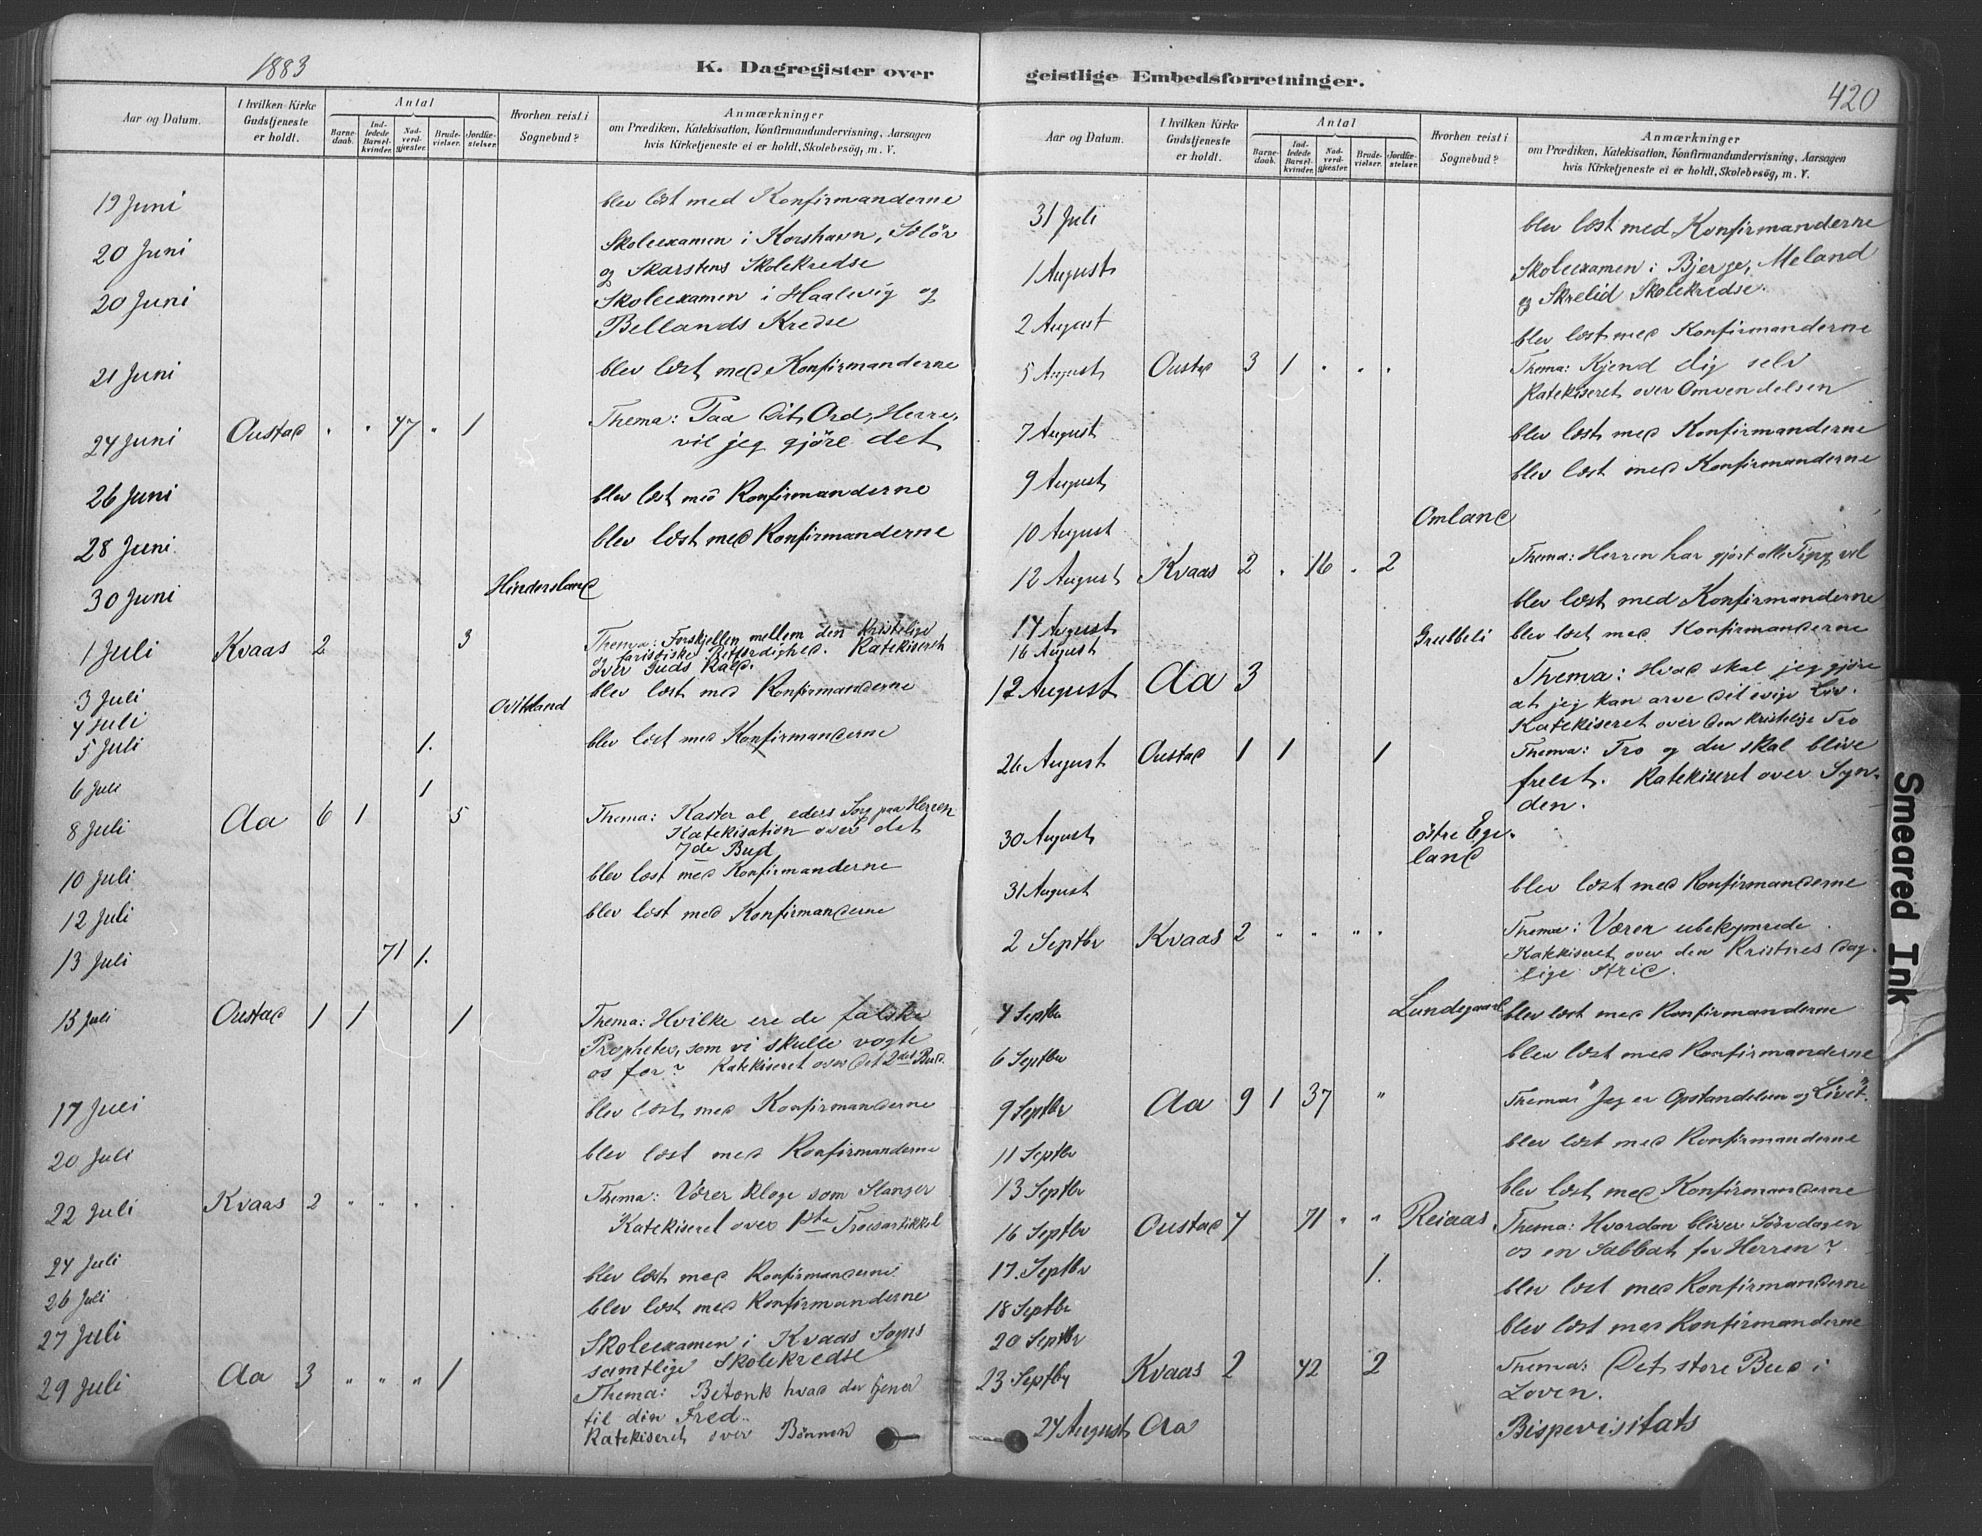 1883
K. Dagregister over
Aar og Datum.
I hvilken Kirke Gudstjeneste er holdt.
Antal
Barnedaab.
Indledede Barselkvinder.
Nadverdgjæster.
Brudevielser.
Jordfæstelser.
Hvorhen reist i Sognebud?
Anmærkninger
om Prædiken, Katekisation, Konfirmandundervisning, Aarsagen
hvis Kirketjeneste ei er holdt, Skolebesög, m. V.
19 Juni blev læst med Konfirmanderne
20 Juni Skoleexamen i Korshavn, Sölör
og Skarstens Skolekredse
20 Juni Skoleexamen i Haalevig og
Bellands Kredse
21 Juni blev læst med Konfirmanderne
24 Juni Oustad " " 47 " 1 Thema: Paa dit Ord, Herre,
vil jeg gjöre det
26 Juni blev læst med Konfirmanderne
28 Juni blev læst med Konfirmanderne
30 Juni Hindersland
1 Juli Kvaas 2 3 Thema: Forskjellen mellem den Kristelige
og farisæiske Retfærdighed. Katekiseret
over Guds Kald.
3 Juli blev læst med Konfirmanderne
4 Juli Ovitland
5 Juli 1. blev læst med Konfirmanderne
6 Juli 1
8 Juli Aa 6 1 5 Thema: Kaster al eders Sorg paa Herren
Katekisation over det
7de Bud
10 Juli blev læst med Konfirmanderne
12 Juli blev læst med Konfirmanderne
13 Juli 71 1.
15 Juli Oustad 1 1 1 Thema: Hvilke ere de falske
Propheter, som vi skulle vogte
os for? Katekiseret over det 2det Bud.
17 Juli blev læst med Konfirmanderne
20 Juli blev læst med Konfirmanderne
22 Juli Kvaas 2 " " " " Thema: Værer kloge som Slanger
Katekiseret over 1ste Troesartikkel
24 Juli blev læst med Konfirmanderne
26 Juli blev læst med Konfirmanderne
27 Juli Skoleexamen i Kvaas Sogns
samtlige Skolekredse
29 Juli Aa 3 " " " 1 Thema: Betænk hvad der tjener
til din Fred.
Katekiseret over Bönnen
geistlige Embedsforretninger.
420
Aar og Datum.
I hvilken Kirke Gudstjeneste er holdt.
Antal
Barnedaab.
Indledede Barselkvinder.
Nadverdgjæster.
Brudevielser.
Jordfæstelser.
Hvorhen reist i Sognebud?
Anmærkninger
om Prædiken, Katekisation, Konfirmandundervisning, Aarsagen
hvis Kirketjeneste ei er holdt, Skolebesög, m. V.
31 Juli blev læst med Konfirmanderne
1 August Skoleexamen i Bjerge, Meland
og Skrelid Skolekredse.
2 August blev læst med Konfirmanderne
5 August Oustad 3 1 " " " Thema: Kjend dig selv
Katekiseret over Omvendelsen
7 August blev læst med Konfirmanderne
9 August blev læst med Konfirmanderne
10 August Omland
12 August Kvaas 2 " 16 " 2 Thema: Herren har gjort alle Ting vel
14 August blev læst med Konfirmanderne
16 August Grubbeli blev læst med Konfirmanderne
12 August Aa 3 Thema: Hvad skal jeg gjöre
at jeg kan arve det evige Liv.
Katekiseret over den kristelige Tro
26 August Oustad 1 1 1 Thema: Tro og du skal blive
frelst. Katekiseret over Synden.
30 August östre Egeland
31 August blev læst med Konfirmanderne
2 Septbr Kvaas 2 " " " " Thema: Værer ubekymrede
Katekiseret over den Kristnes daglige Strid.
4 Septbr Lundegaard blev læst med Konfirmanderne
6 Septbr blev læst med Konfirmanderne
9 Septbr Aa 9 1 37 " Thema: "Jeg er Opstandelsen og Livet".
11 Septbr blev læst med Konfirmanderne
13 Septbr blev læst med Konfirmanderne
16 Septbr Oustad 4 71 " " Reiaas Thema: Hvordan bliver Söndagen
os en Sabbat for Herren?
17. Septbr 1.
18 Septbr blev læst med Konfirmanderne
20 Septbr blev læst med Konfirmanderne
23 Septbr Kvaas 2 42 2 Thema: Det store Bud i
Loven.
24 August Aa Bispevisitats
Smeared Ink